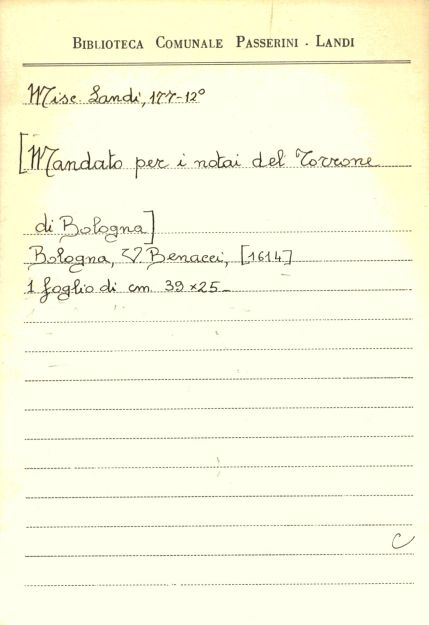 BIBLIOTECA COMUNALE PASSERINI - LANDI
Misc. Landi, 177-12°
[Mandato per i notai del Torrone
di Bologna]
Bologna, V. Benacci, [1614]
1 foglio di cm. 39 x 25 -
C